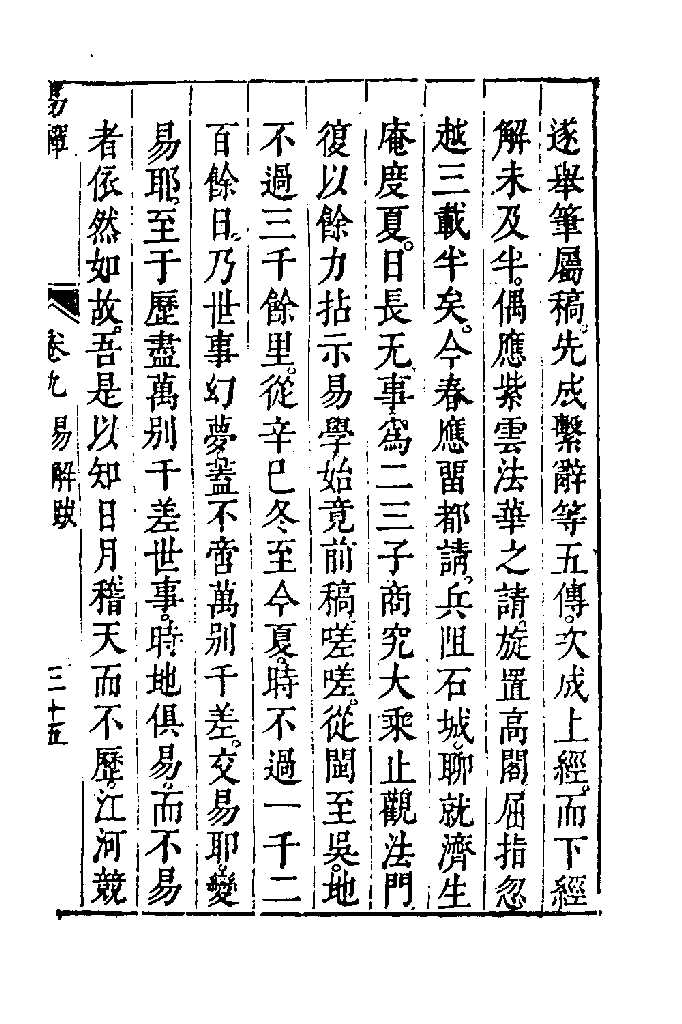 遂舉筆屬稿。先成繫辭等五傳。次成上經。而下經
解未及半。偶應紫雲法華之請。旋置高閣屈指忽
越三載半矣。今春應留都請。兵阻石城。聊就濟生
庵度夏。日長无事。爲二三子商究大乘止觀法門
復以餘力拈示易學。始竟前稿。嗟嗟。從閩至吳。地
不過三千餘里。從辛巳冬至今夏。時不過一千二
百餘日。乃世事幻夢。蓋不啻萬別千差。交易耶。變
易耶。至于歷盡萬別千差世事。時地俱易。而不易
者依然如故。吾是以知日月稽天而不歷。江河競
易禪 卷九 易解跋 三十五